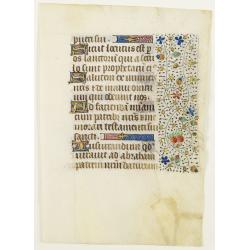 pueri sui.
Sicut locutus est p
os sanctorum qui a secu
lo sunt prophetarum ei
Salutem ex inimicis
nris et de manu omni
um qui oderunt nos
Ad faciendam miseri
cum patribus nris et me
morari testamenti sui
sancti.
Iusiurandum qd
iuravit ad abraham
patrem nrm daturum